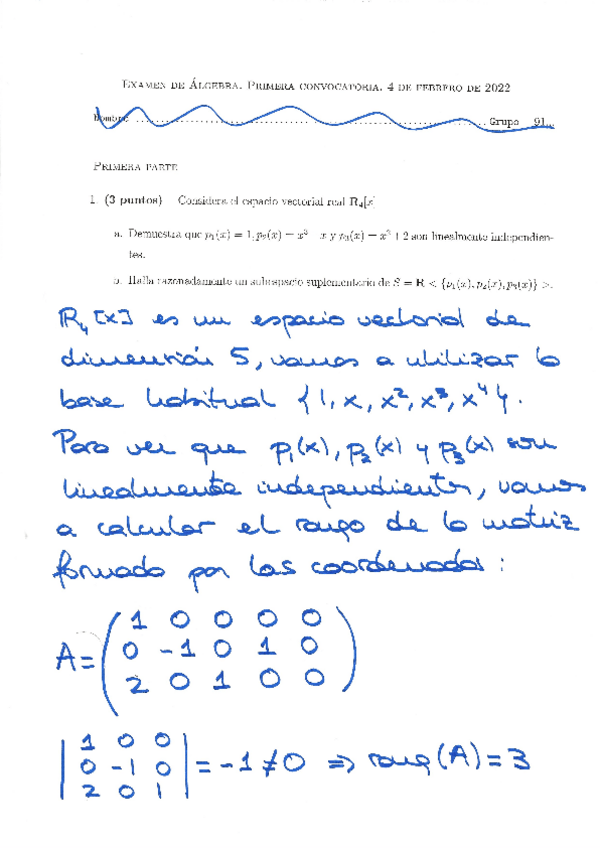 EXAMEN DE ÁLGEBRA. PRIMERA CONVOCATORIA. 4 DE FEBRERO DE 2022
Nombre ........ Grupo 91
PRIMERA PARTE
1. (3 puntos) Considera el espacio vectorial real R₄[x]
a. Demuestra que p₁(x) = 1, p₂(x) = x³ - x y p₃(x) = x² + 2 son linealmente independien-
tes.
b. Halla razonadamente un subespacio suplementario de S = R < {p₁(x), p₂(x), p₃(x)} >.
R₄[x] es un espacio vectorial de
dimensión 5, vamos a utilizar la
base habitual {1, x, x², x³, x⁴}.
Para ver que p₁(x), p₂(x) y p₃(x) son
linealmente independientes, vamos
a calcular el rango de la matriz
formada por las coordenadas:
A = ( 1 0 0 0 0
0 -1 0 1 0
2 0 1 0 0 )
| 1 0 0 |
| 0 -1 0 | = -1 ≠ 0 ⇒ rang(A) = 3
| 2 0 1 |